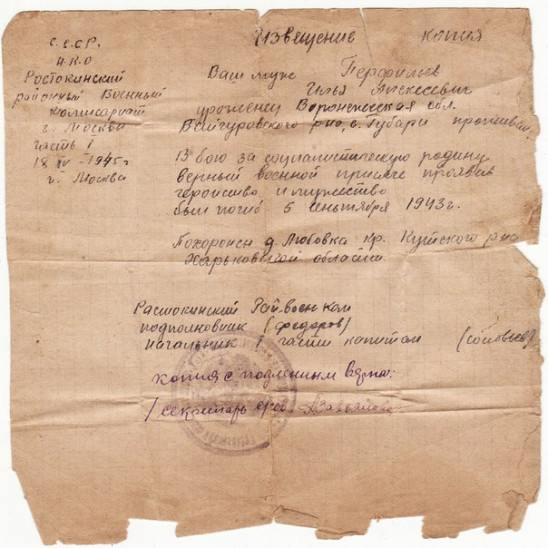 С.С.С.Р.
Н.К.О
Ростокинский
районный Военный
комиссариат
г. Москва
часть 1
18 IV - 1945 г
г. Москва
Извещение копия
Ваш муж Перфильев
Илья Алексеевич
уроженец Воронежская обл.
рно, с. Губари проживал
В бою за социалистическую родину
верный военной присяге проявив
геройство и мужество
был погиб 5 сентября 1943 г.
Похоронен д. Любовка Кр. Кутского рна
Харьковской области
Растокинский Райвоенком
подполковник (федоров)
начальник 1 части копитан (соловьев)
копия с подленным верна:
/ секлитарь